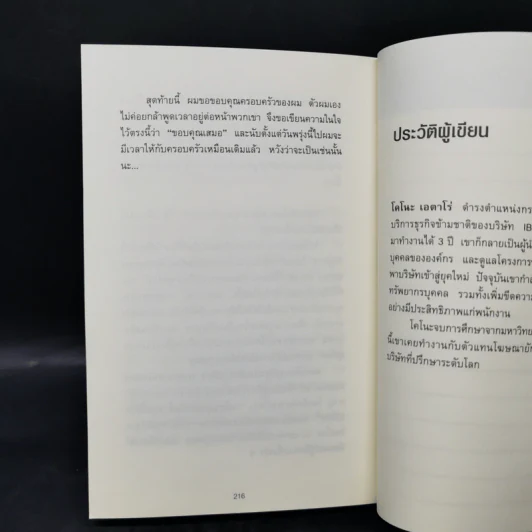 สุดท้ายนี้ ผมขอขอบคุณครอบครัวของผม ตัวผมเอง
ไม่ค่อยกล้าพูดเวลาอยู่ต่อหน้าพวกเขา จึงขอเขียนความในใจ
ไว้ตรงนี้ว่า “ขอบคุณเสมอ” และนับตั้งแต่วันพรุ่งนี้ไปผมจะ
มีเวลาให้กับครอบครัวเหมือนเดิมแล้ว หวังว่าจะเป็นเช่นนั้น
นะ...
216
ประวัติผู้เขียน
โคโนะ เอตาโร่ ดำรงตำแหน่งกร
บริการธุรกิจข้ามชาติของบริษัท IB
มาทำงานได้ 3 ปี เขาก็กลายเป็นผู้นำ
บุคคลขององค์กร และดูแลโครงการ
พาบริษัทเข้าสู่ยุคใหม่ ปัจจุบันเขากำลั
ทรัพยากรบุคคล รวมทั้งเพิ่มขีดความ
อย่างมีประสิทธิภาพแก่พนักงาน
โคโนะจบการศึกษาจากมหาวิทย
นี้เขาเคยทำงานกับตัวแทนโฆษณายัก
บริษัทที่ปรึกษาระดับโลก